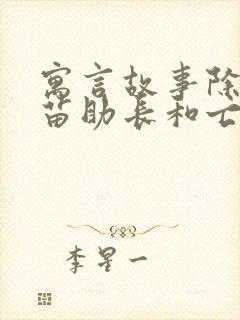 寓言故事除
苗助长和亡
李星一